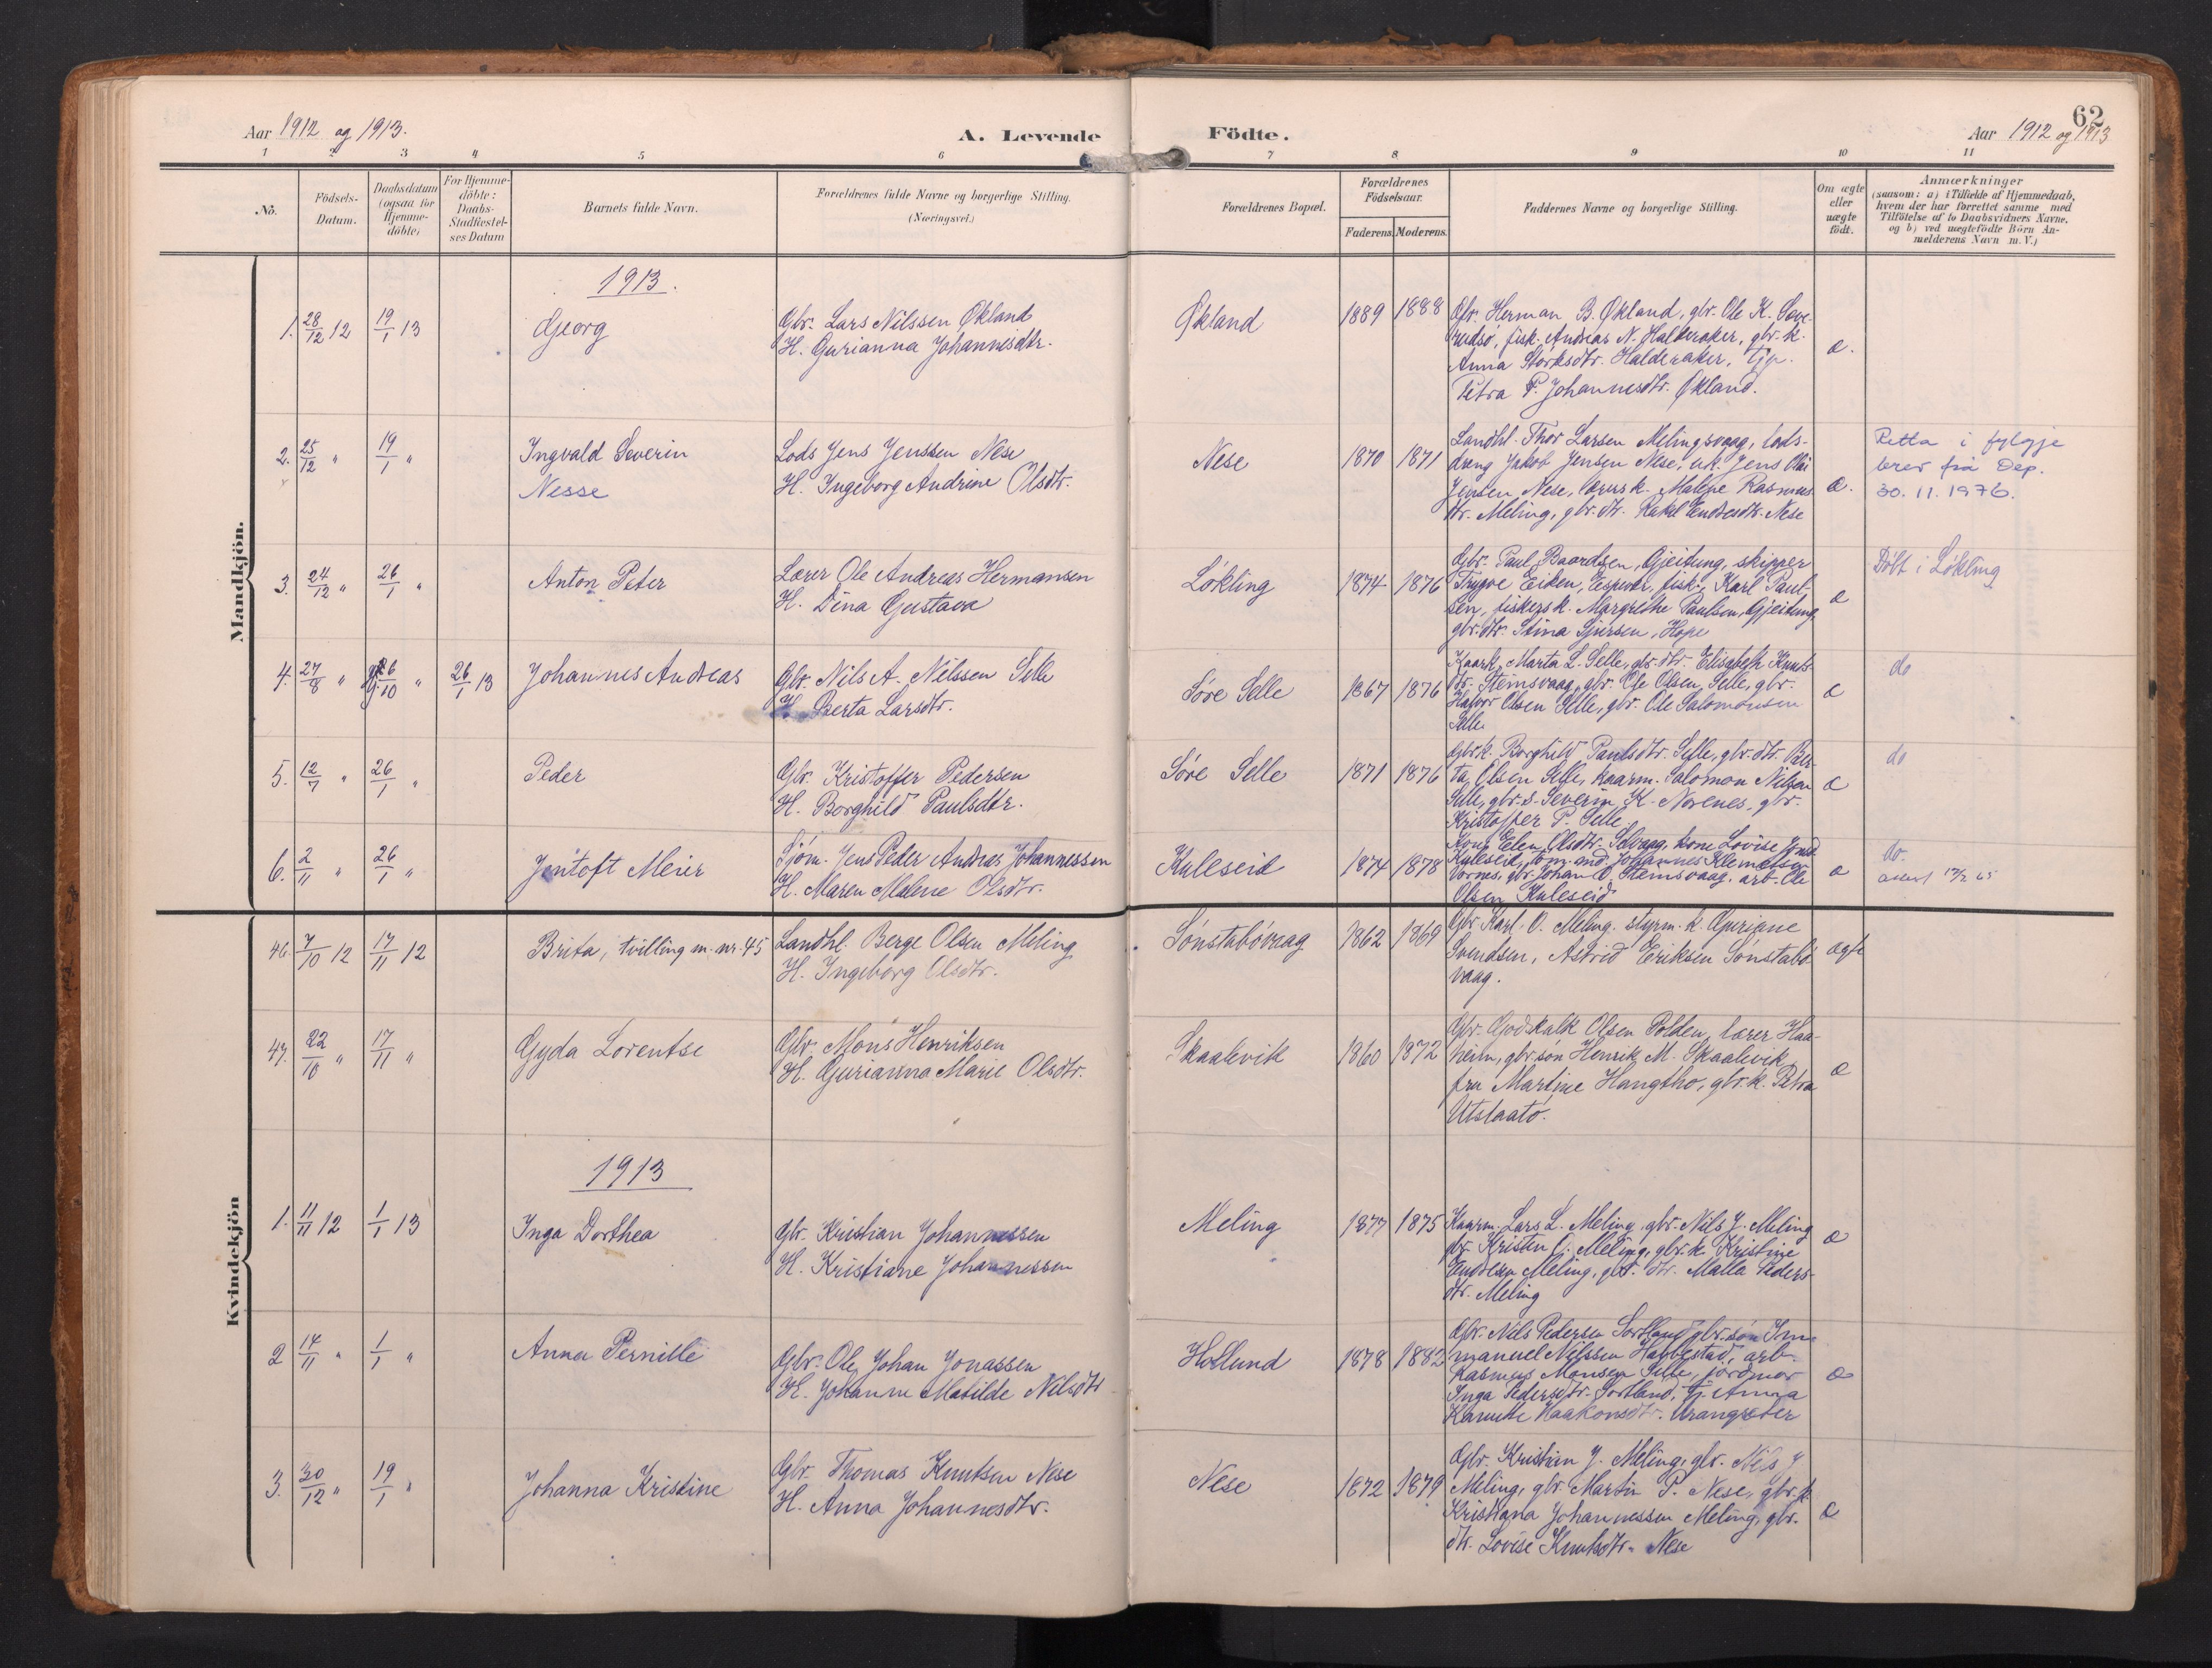 62
Aar 1912 og 1913.
A. Levende Födte.
Aar 1912 og 1913
1 2 3 4 5 6 7 8 9 10 11
No.
Födsels-
Datum.
Daabsdatum
(ogsaa for
Hjemme-
döbte)
For Hjemme-
döbte:
Daabs-
Stadfæstel-
ses Datum
Barnets fulde Navn.
Forældrenes fulde Navne og borgerlige Stilling.
(Næringsvei.)
Forældrenes Bopæl.
Forældrenes
Födselsaar.
Faderens.
Moderens.
Faddernes Navne og borgerlige Stilling.
Om ægte
eller
uægte
födt.
Anmærkninger
(saasom: a) i Tilfælde af Hjemmedaab,
hvem der har forrettet samme med
Tilföielse af to Daabsvidners Navne,
og b) ved uægtefödte Börn An-
melderens Navn m. V.)
Mandkjön.
1913.
1. 28/12 12 19/1 13
Georg
Gbr. Lars Nilssen Økland
H. Gurianna Johannesdtr.
Økland
1889 1888
Gbr. Herman B. Økland, gbr. Ole K.
fisk. Andreas N. Halderaker, gbr. k.
Anna Størksdtr. Halderaker, Tje.
Petra P. Johannesdtr. Økland.
æ.
2. 25/12 " 19/1 "
Ingvald Severin
Nesse
Lods Jens Jenssen Nese
H. Ingeborg Andrine Olsdtr.
Nese
1870 1871
Landhl. Thor Larsen Melingsvaag, lods-
dreng Jakob Jensen Nese, u.k. Jens Olai
Jensen Nese, Malene Rasmus
dtr. Meling, gbr. dtr. Rakel Endresdtr. Nese
æ.
Retta i fylgje
brev frå Dep.
30. 11. 1976.
3. 24/12 " 26/1 "
Anton Peter
Lærer Ole Andreas Hermansen
H. Dina Gustava
Løkling
1874 1876
Gbr. Paul Baardsen, Gjeitung, skipper
Trygve Eiken, Espevær, fisk. Karl Paul-
sen, fiskersk. Margrethe Paulsen, Gjeitung,
gbr. dtr. Stina Sjursen, Hope
æ
Døbt i Løkling
4. 27/8 " 6/10 " 26/1 13
Johannes Andreas
Gbr. Nils A. Nilssen Selle
H. Berta Larsdtr.
Søre Selle
1867 1876
Kaark. Marta L. Selle, gbr. dtr. Elisabeth Knuts
dtr. Stemsvaag, gbr. Ole Olsen Selle, gbr.
Halvor Olsen Selle, gbr. Ole Salomonsen
Selle
æ
do
5. 12/7 " 26/1 "
Peder
Gbr. Kristoffer Pedersen
H. Borghild Paulsdtr.
Søre Selle
1871 1876
Gbrk. Borghild Paulsdtr. Selle, gbr. dtr. Ber-
ta Olsen Selle, kaarm. Salomon Nilsen
Selle, gbr. s. Severin K. Norenes, gbr.
Kristoffer P. Selle
æ
do
6. 2/11 " 26/1 "
Jentoft Meier
Sjøm. Jens Peder Andreas Johannessen
H. Maren Malene Olsdtr.
Kuleseid
1874 1878
Kone Elen Olsdtr. Selvaag, kone Lovise
Kuleseid, Johannes Klemetsen
Vornes, gbr. Johan O. Stemsvaag, arb. Ole
Olsen Kuleseid
æ
do.
Kvindekjön
46. 7/10 12 17/11 12
Brita, tvilling m. nr. 45
Landhl. Berge Olsen Meling
H. Ingeborg Olsdtr.
Sønstabøvaag
1862 1869
Gbr. Karl O. Meling, styrm. k. Guriane
Svendsen, Astrid Eriksen Sønstabø
vaag.
ægte
47. 22/10 " 17/11 "
Gyda Lorentse
Gbr. Mons Henriksen
H. Gurianna Marie Olsdtr.
Skaalevik
1860 1872
Gbr. Godskalk Olsen Polden, lærer Haa-
heim, gbr. søn Henrik M. Skaalevik,
fru Martine Hangtho, gbr. k. Petra
Utslaatø.
æ
1913
1. 11/11 12 1/1 13
Inga Dorthea
Gbr. Kristian Johannessen
H. Kristiane Johannessen
Meling
1877 1875
Kaarm. Lars L. Meling, gbr. Nils J. Meling
gbr. Kristen O. Meling, gbr. k. Kristine
Endresen Meling, gbr. dtr. Malla Peders-
dtr. Meling
æ
2 14/11 " 1/1 "
Anna Pernille
Gbr. Ole Johan Jonassen
H. Johanne Matilde Nilsdtr
Hollund
1878 1882
Gbr. Nils Pedersen Sortland, gbr. søn Im-
manuel Nilssen Habbestad, arb.
Rasmus Monsen Selle, jordmor
Inga Pedersdtr. Sortland, tj. Anna
Kamitte Haakonsdtr. Urangsæter
æ
3. 30/12 " 19/1 "
Johanna Kristine
Gbr. Thomas Knutsen Nese
H. Anna Johannesdtr.
Nese
1872 1879
Gbr. Kristian J. Meling, gbr. Nils J
Meling, gbr. Martin P. Nese, gbr. k.
Kristiana Johannessen Meling, gbr.
dtr. Lovise Knutsdtr. Nese
æ